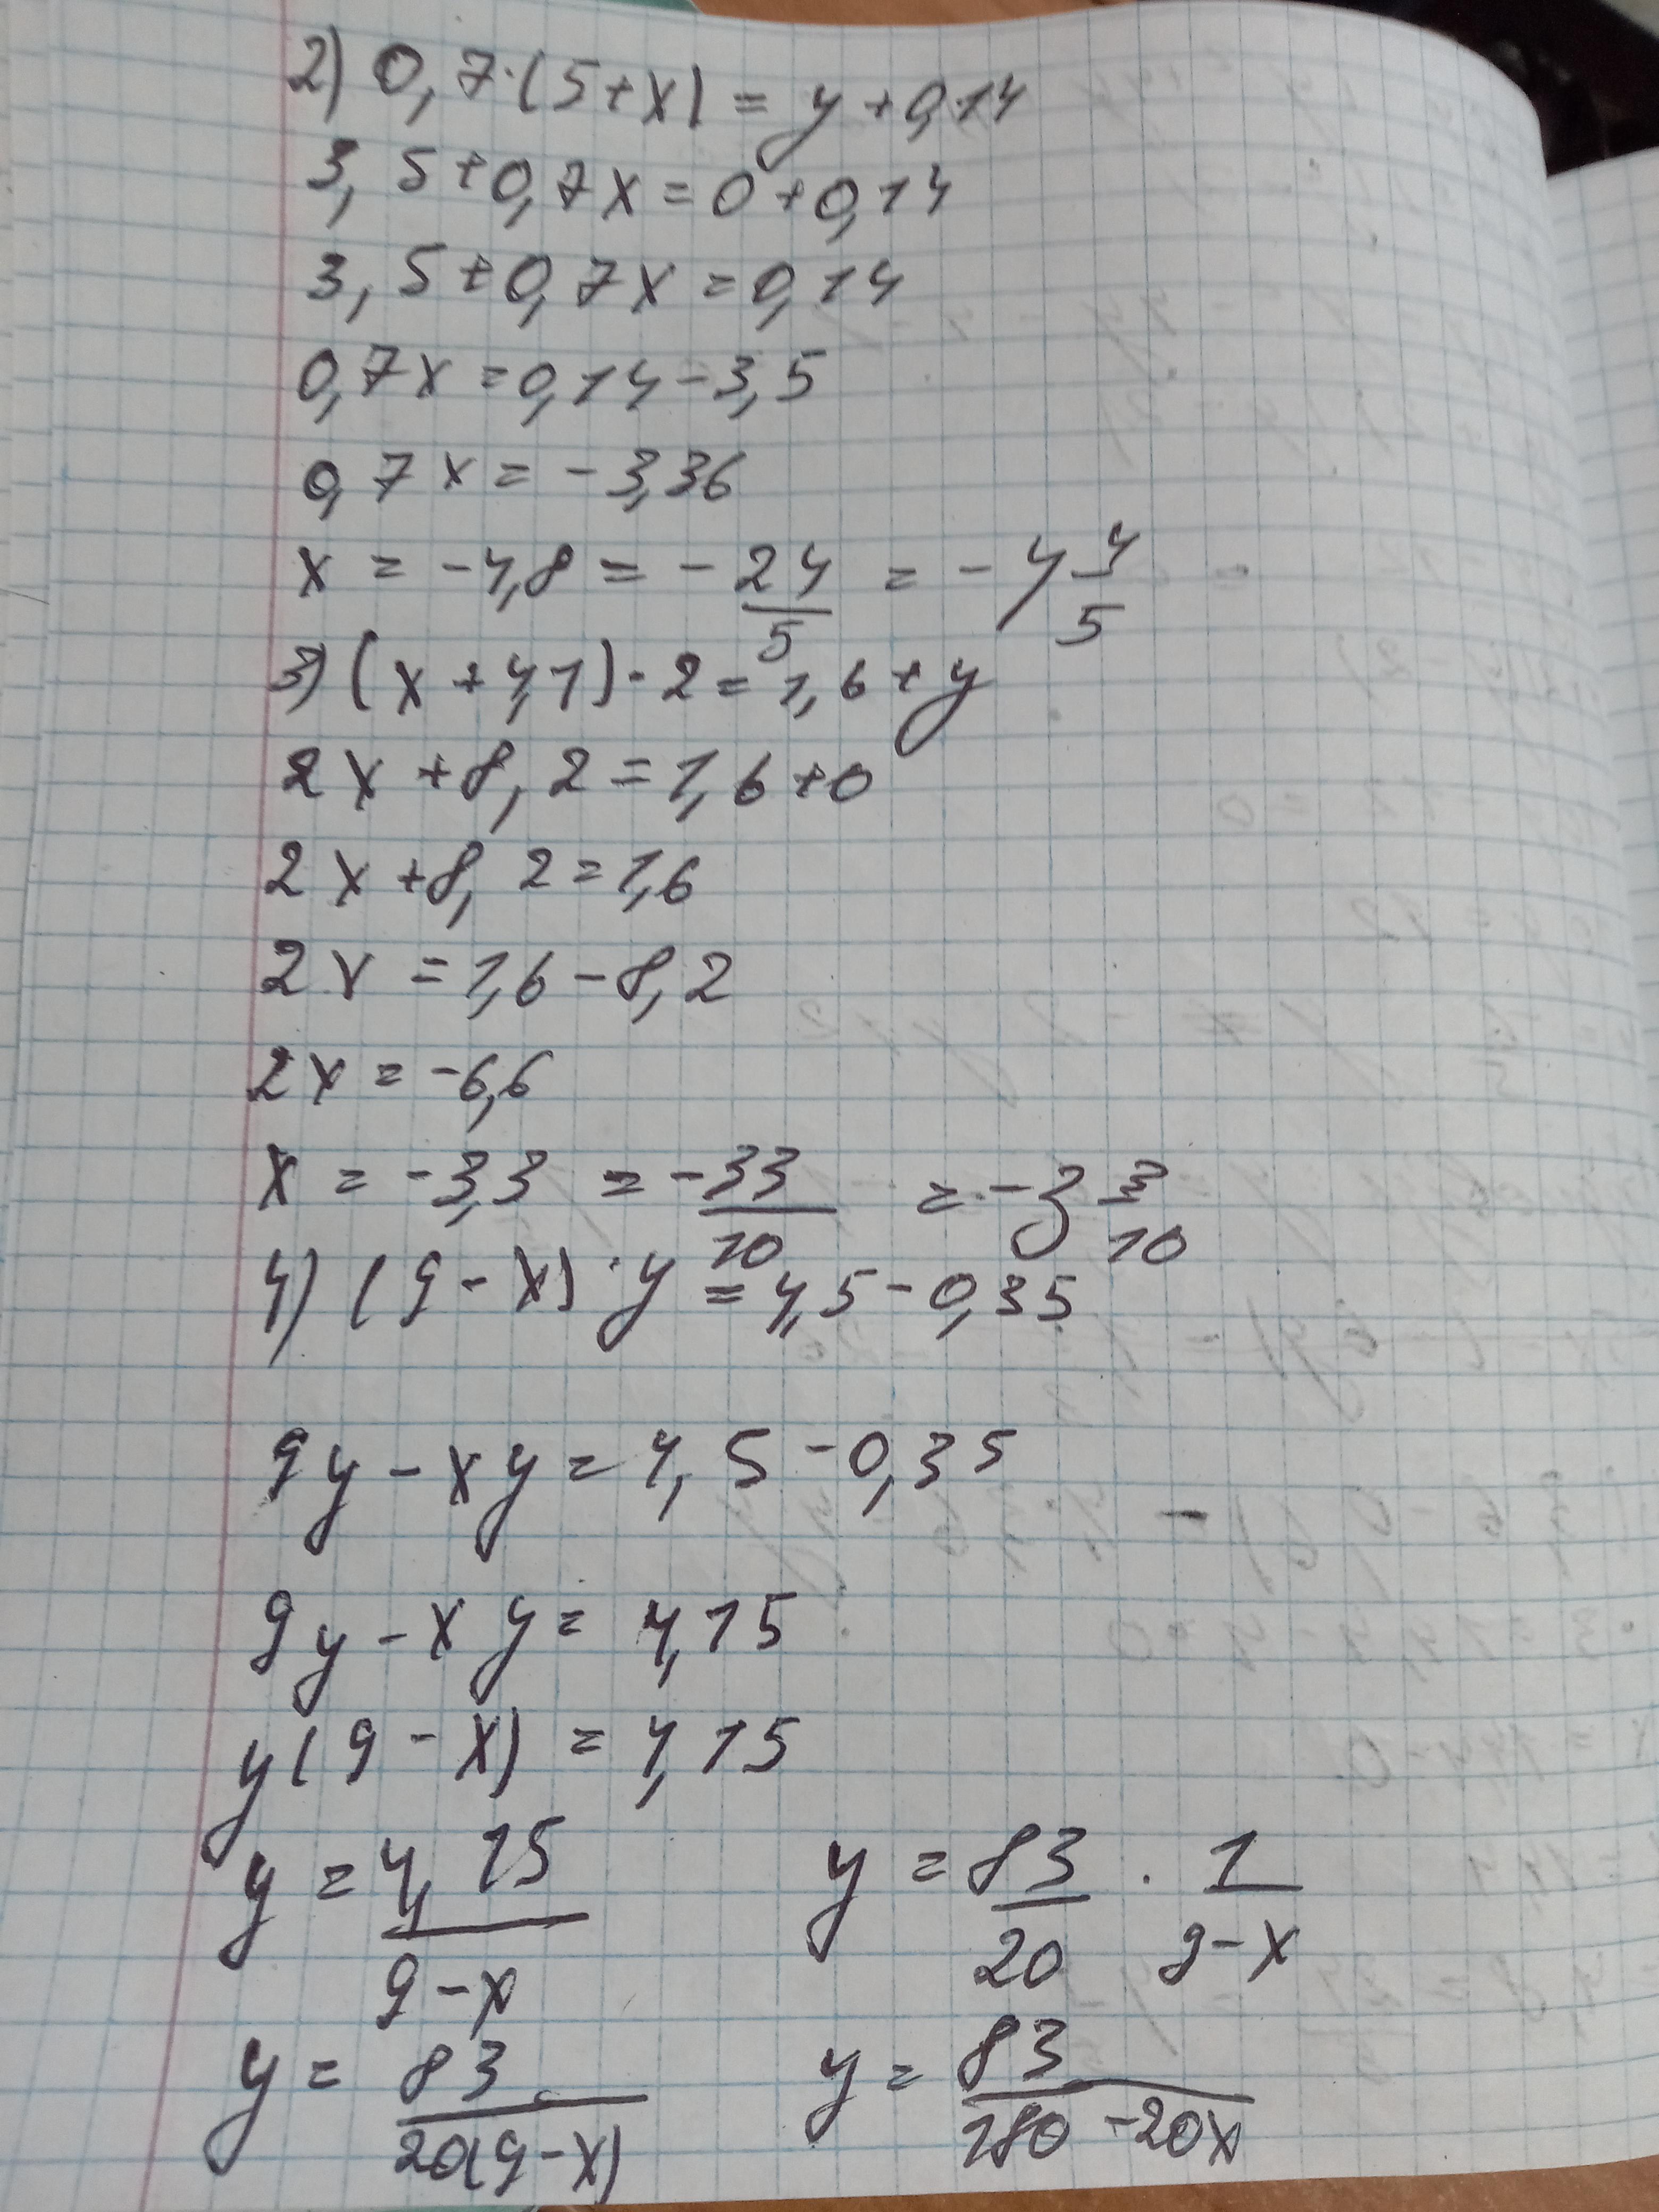 2) 0,7·(5+x) = y+0,14
3,5+0,7x=0+0,14
3,5+0,7x=0,14
0,7x=0,14-3,5
0,7x=-3,36
x = -4,8 = -24/5 = -4 4/5
3) (x+4,1)·2=1,6+y
2x+8,2=1,6+0
2x+8,2=1,6
2x=1,6-8,2
2x=-6,6
x = -3,3 = -33/10 = -3 3/10
4) (9-x)·y=4,5-0,35
9y-xy=4,5-0,35
9y-xy=4,15
y(9-x)=4,15
y=4,15/9-x y=83/20·1/9-x
y=83/20(9-x) y=83/180-20x